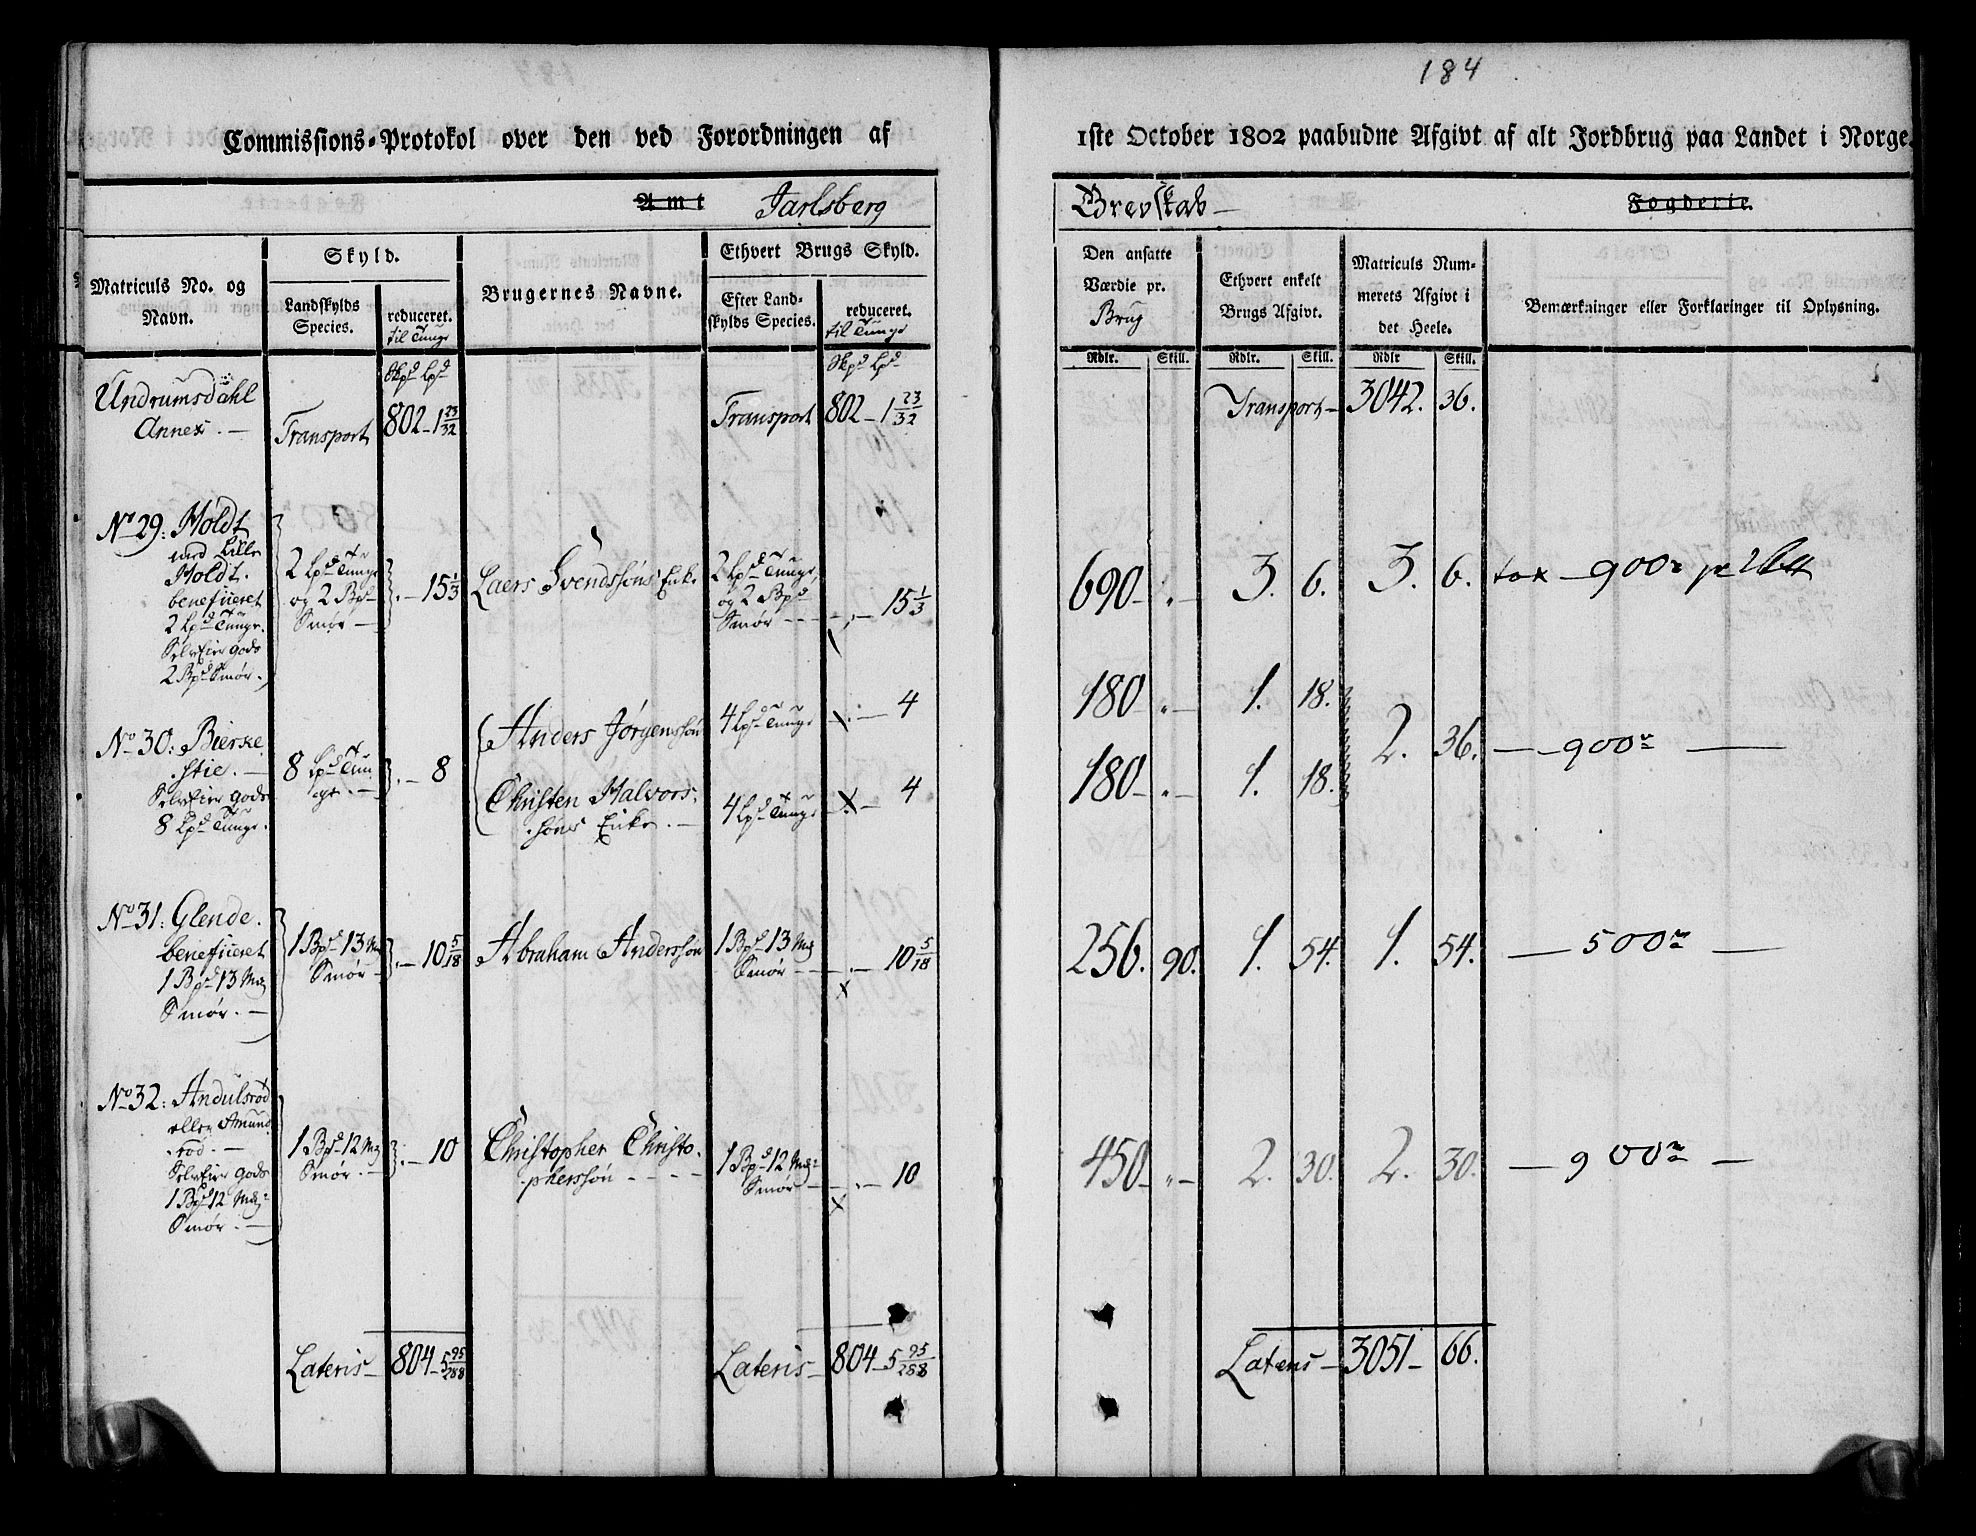 184
Commissions-Protokol over den ved Forordningen af
1ste October 1802 paabudne Afgivt af alt Jordbrug paa Landet i Norge.
Amt Jarlsberg
Grevskab
Fogderie.
Matriculs No. og
Navn.
Skyld.
Landskylds
Species.
reduceret.
til Tunge
Brugernes Navne.
Ethvert Brugs Skyld.
Efter Land-
skylds Species.
reduceret.
til Tunge
Den ansatte
Værdie pr.
Brug
Ethvert enkelt
Brugs Afgivt.
Matriculs Num-
merets Afgivt i
det Heele.
Bemærkninger eller Forklaringer til Oplysning.
Rdlr. Skill. Rdlr. Skill. Rdlr Skill.
Skpd Lpd
Skpd Lpd
Undrumsdahl
Annex. —
Transport 802 - 1 23/32
Transport 802 - 1 23/32
Transport - 3042. 36.
No 29: Holdt
med Lille
Holdt.
beneficeret
2 Lpd Tunge.
Selveier Gods
2 Bpd Smør.
2 Lpd Tunge
og 2 Bpd
Smør —
. — 15 1/3
Laers Svendssøns Enke
2 Lpd Tunge,
og 2 Bpd
Smør - - -
. — 15 1/3
690 - „ - 3. 6. 3. 6. tax — 900
No 30: Bierke
stie. —
Selveier Gods
8 Lpd Tunge.
8 Lpd Tun
ge. —
. — 8
Anders Jørgenssøn
4 Lpd Tunge
. — 4
180 - „ - 1. 18.
2. 36. — 900 —
Christen Halvors.
søns Enke. —
4 Lpd Tunge
. — 4
180 - „ - 1. 18.
No 31: Glende.
beneficeret
1 Bpd 13 Mk
Smør. —
1 Bpd 13 Mk
Smør -
. — 10 5/18
Abraham Anderssøn
1 Bpd 13 Mk
Smør - - -
. — 10 5/18
256. 90. 1. 54. 1. 54. — 500 —
No 32: Andulsrød
eller Amund
rød. —
Selveier Gods
1 Bpd 12 Mk
Smør. —
1 Bpd 12 Mk
Smør. —
. — 10
Christopher Christo.
pherssøn - - - -
1 Bpd 12 Mk
Smør - -
. — 10
450 - „ - 2. 30. 2. 30. — 900 —
Lateris - 804 - 5 95/288
Lateris - 804 - 5 95/288
Lateris - 3051 - 66.